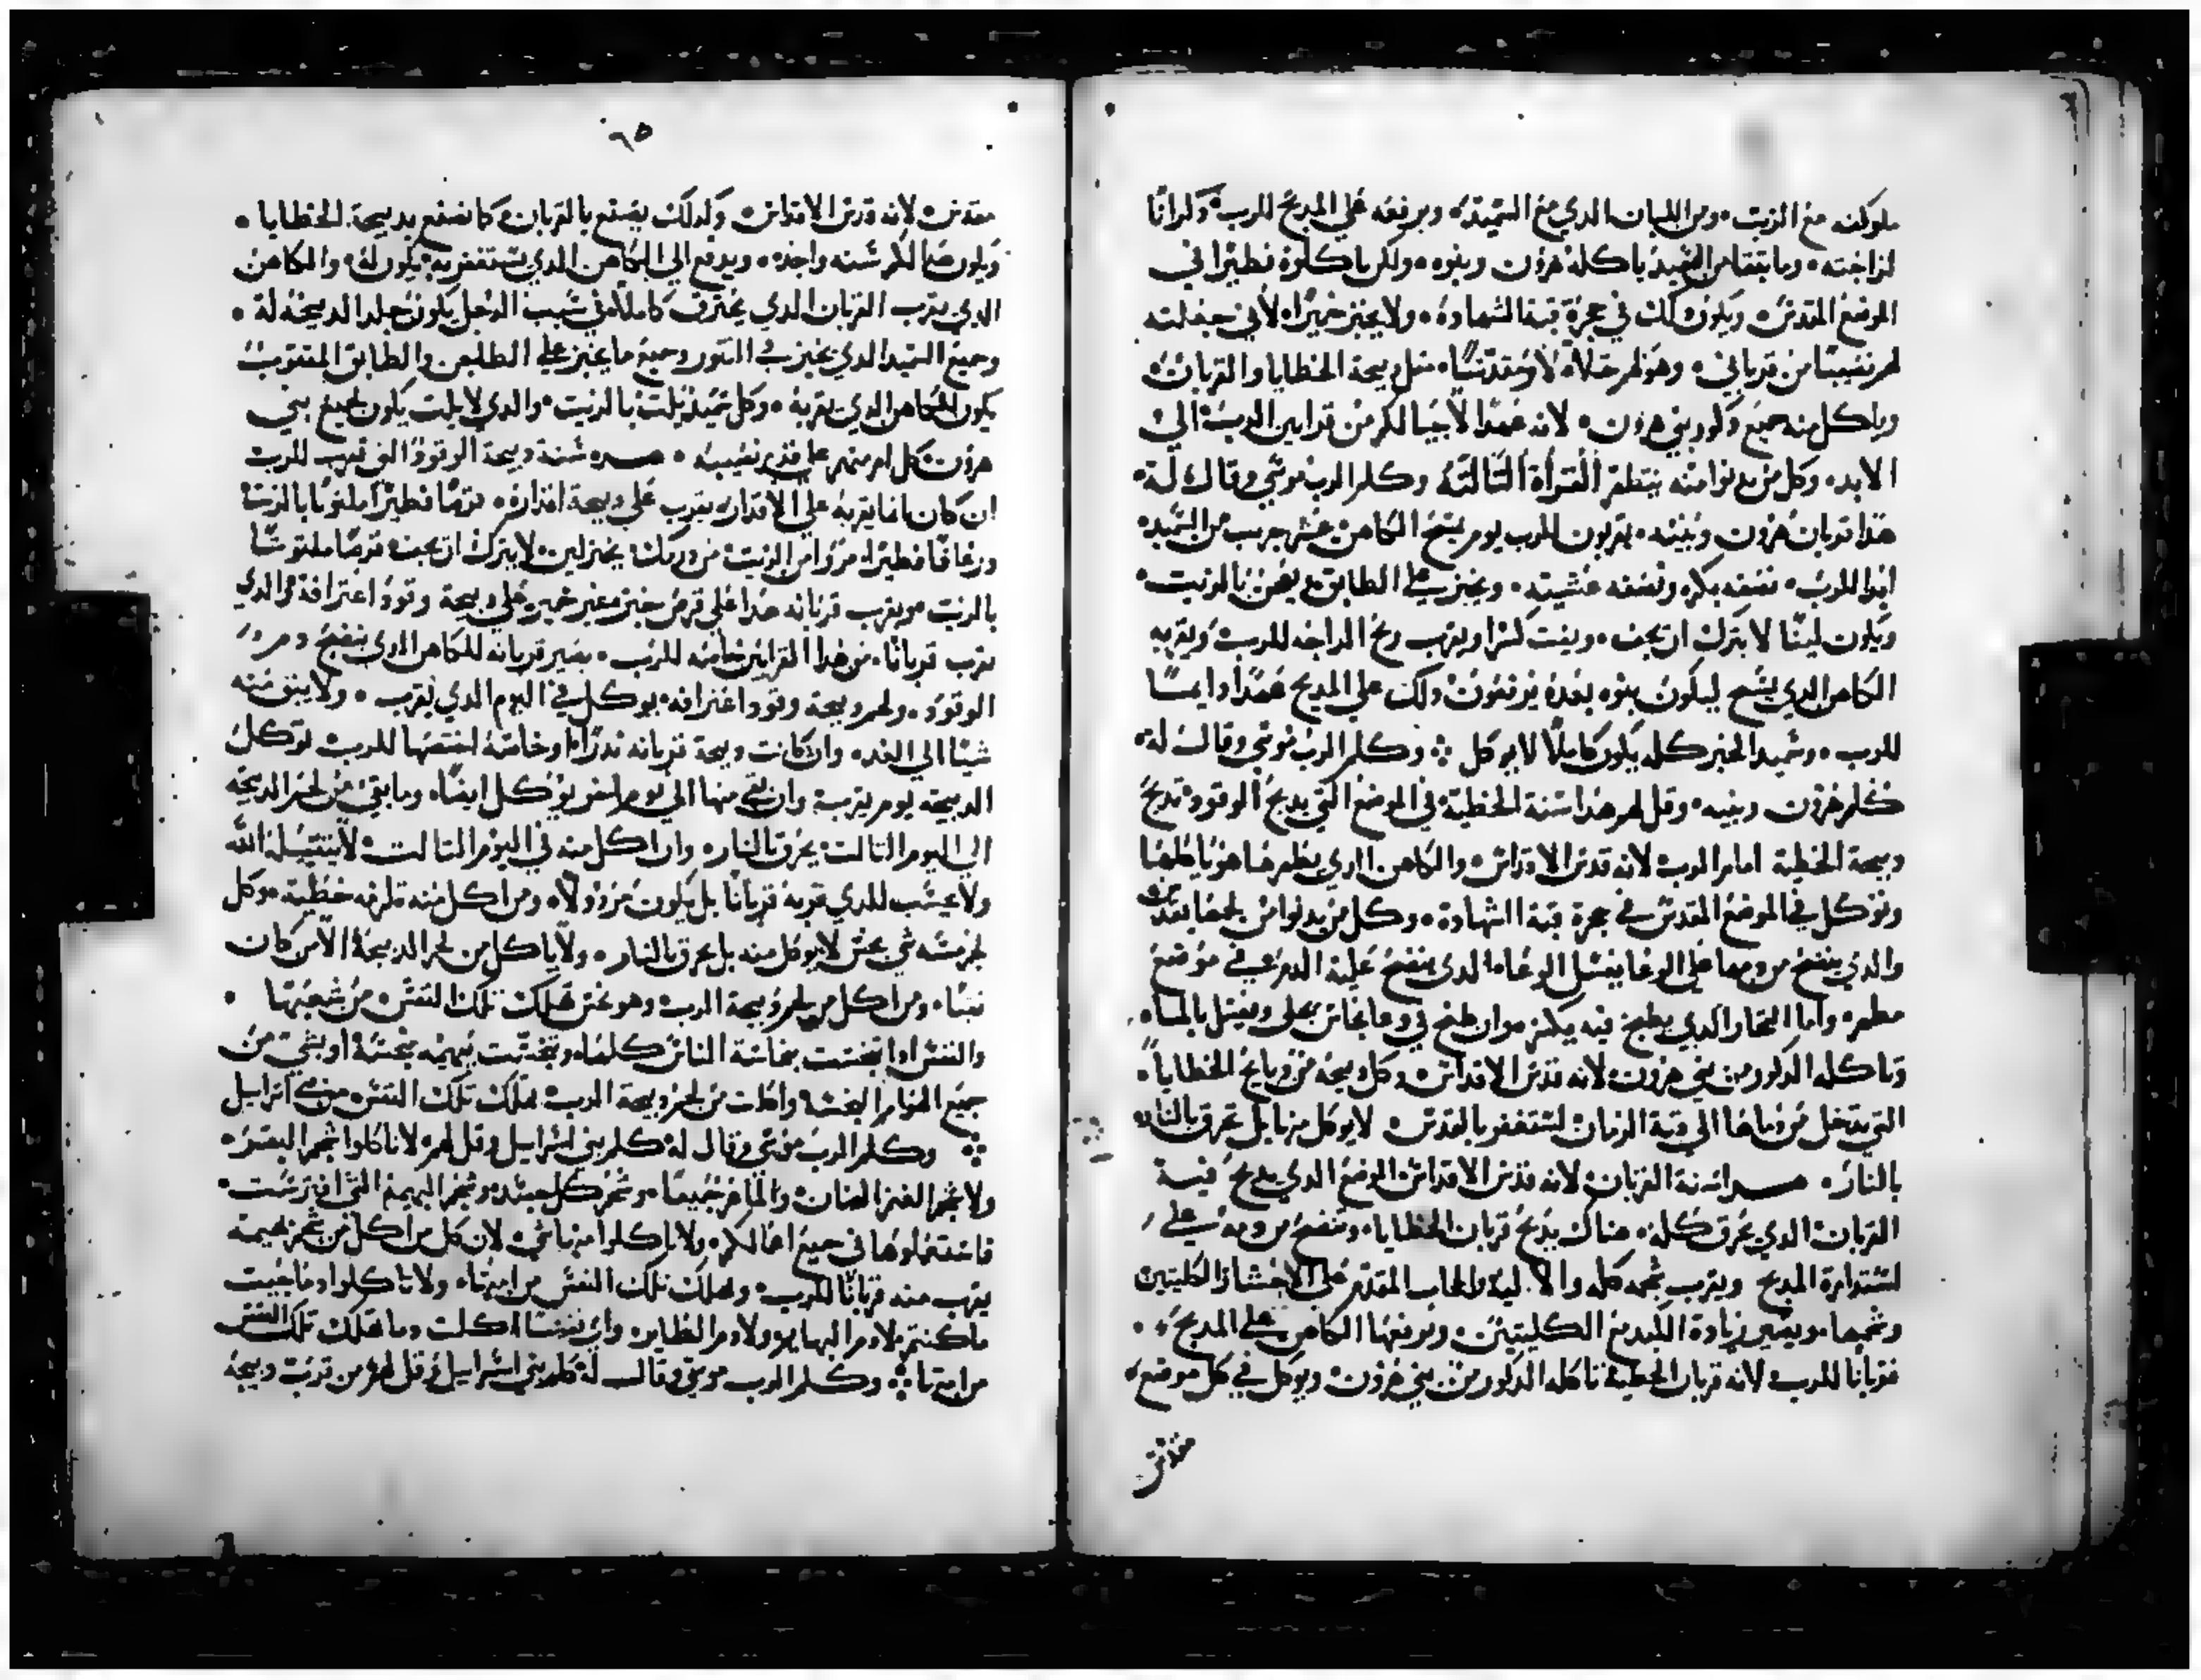 ملوكفه مع الزيت ومن اللبان الدي مع السميد ويرفعه علي المدبح للرب دكرانا
لراحته وما يتبقا من السميد ياكله هرون وبنوه ولكن ياكلوه فطيرا في
الموضع المقدس ويكون دلك في حجرة قبة الشهادة ولا يخبز خميرا لاني جعلته
لهم نصيبا من قرباني وهو لهم حلالا مقدسا مثل دبيحة الخطايا والقربان
وياكل منه جميع دكور بني هرون لانه عهدا لاجيالكم من قرابين الرب الي
الابد وكل من يدنوا منه يتطهر القراة التالتة وكلم الرب موسي وقال له
هدا قربان هرون وبنيه يقربون للرب يوم يمسح الكاهن عشر جريب من السميد
ابدا للرب نصفه بكره ونصفه عشيته ويخبز علي الطابق يعجن بالزيت
ويكون لينا لا يترك ان يجف ويفت كسرا ويقرب ريح الراحه للرب ويقربه
الكاهن الدي يمسح ليكون بنوه بعده يرفعون دلك علي المدبح عهدا دايما
للرب وسميد الخبز كله يكون كاملا لا يوكل وكلم الرب موسي وقال له
كلم هرون وبنيه وقل لهم هدا سنة الخطية في الموضع التي يدبح الوقود تدبح
دبيحة الخطية امام الرب لانه قدس الاقداس والكاهن الدي يطهرها هو ياكلها
وتوكل في الموضع المقدس في حجرة قبة الشهادة وكل من يدنوا من لحمها يتقدس
والدي ينضح من دمها علي الوعا يغسل الوعاء الدي ينضح عليه الدم في موضع
مطهر واما الفخار الدي يطبخ فيه يكسر وان طبخ في وعا نحاس يجلي ويغسل بالماء
وياكله الدكور من بني هرون لانه قدس الاقداس وكل دبيحة من دبايح الخطايا
التي يدخل من دماها الي قبة الزمان لتستغفر بالقدس لا يوكل منها بل تحرق بالنار
بالنار هده سنة القربان لانه قدس الاقداس الموضع الدي يدبح فيه
القربان الدي يحرق كله هناك يدبح قربان الخطايا وينضح من دمه علي
استدارة المدبح ويقرب شحمه كله والالية والحجاب المقدم علي الاحشا والكليتين
وشحمها ويصير زيادة الكبد مع الكليتين ويرفعها الكاهن علي المدبح
قربانا للرب لانه قربان الخطية تاكله الدكور من بني هرون ويوكل في كل موضع
مقدس
٦٥
مقدس لانه قدس الاقداس ولدلك يصنع بالقربان كما يصنع بدبيحة الخطايا
ويكون هدا لكم سنه واحده ويدفع الي الكاهن الدي يستغفر به يكون له والكاهن
الدي يقرب القربان الدي يحترق كاملا في سبب الرجل يكون جلد الدبيحة له
وجميع السميد الدي يخبز في التنور وجميع ما يخبز علي الطاجن والطابق المقعر
يكون للكاهن الدي يقربه وكل سميد يلت بالزيت والدي لا يلت يكون لجميع بني
هرون كل امر منهم علي قدر نصيبه هده سنة دبيحة الوقود التي تقرب للرب
ان كان انما يقربه علي الاقدار يقرب علي دبيحة اقداره قرصا فطيرا ملتوتا بالزيت
ورغافا فطيرا مروا من الزيت من درمك يخبز لين لا يترك ان يجف قرصا ملتوتا
بالزيت ويقرب قربانه هدا علي قرص خبز غير خمير علي دبيحة وقود اعترافه والدي
يقرب قربانا من هدا القرابين خاصه للرب يصير قربانه للكاهن الدي ينضح دم
الوقود ولحم دبيحة وقود اعترافه يوكل في اليوم الدي يقرب ولا يبق منه
شيا الي الغد وان كانت دبيحة قربانه ندرا او خاصة اختصها للرب توكل
الدبيحه يوم يقربه وان بقي منها الي يوم اخر يوكل ايضا وما بقي من لحم الدبيحه
الي اليوم التالت يحرق بالنار وان اكل منه في اليوم التالت لا يتقبله الله
ولا يحسب للدي قربه قربانا بل يكون مردولا ومن اكل منه تلزمه خطية وكل
لحم مسه شي نجس لا يوكل منه بل يحرق بالنار ولا ياكل من لحم الدبيحة الا من كان
نقيا ومن اكل من لحم دبيحة الرب وهو نجس تهلك تلك النفس من شعبها
والنفس ادا تنجست بنجاسة الناس كلها وتنجست بهيمه نجسة او بشي من
جميع الهوام النجسة واكلت من لحم دبيحة الرب تهلك تلك النفس من اسراييل
وكلم الرب موسي وقال له كلم بني اسراييل وقل لهم لا تاكلوا شحم البقر
ولا شحم الغنم الضان والماعز جميعا وشحم كل ميته وشحم البهيمة التي افترست
فاستعملوها في جميع اعمالكم ولا تاكلوا منها شي لان كل من اكل من شحم بهيمة
يقرب منه قربانا للرب وتهلك تلك النفس من امتها ولا تاكلوا دما حيث
ما كنتم لا دم البهايم ولا دم الطاير واي نفس اكلت دما تهلك تلك النفس
من امتها وكلم الرب موسي وقال له كلم بني اسراييل وقل لهم من قرب دبيحة